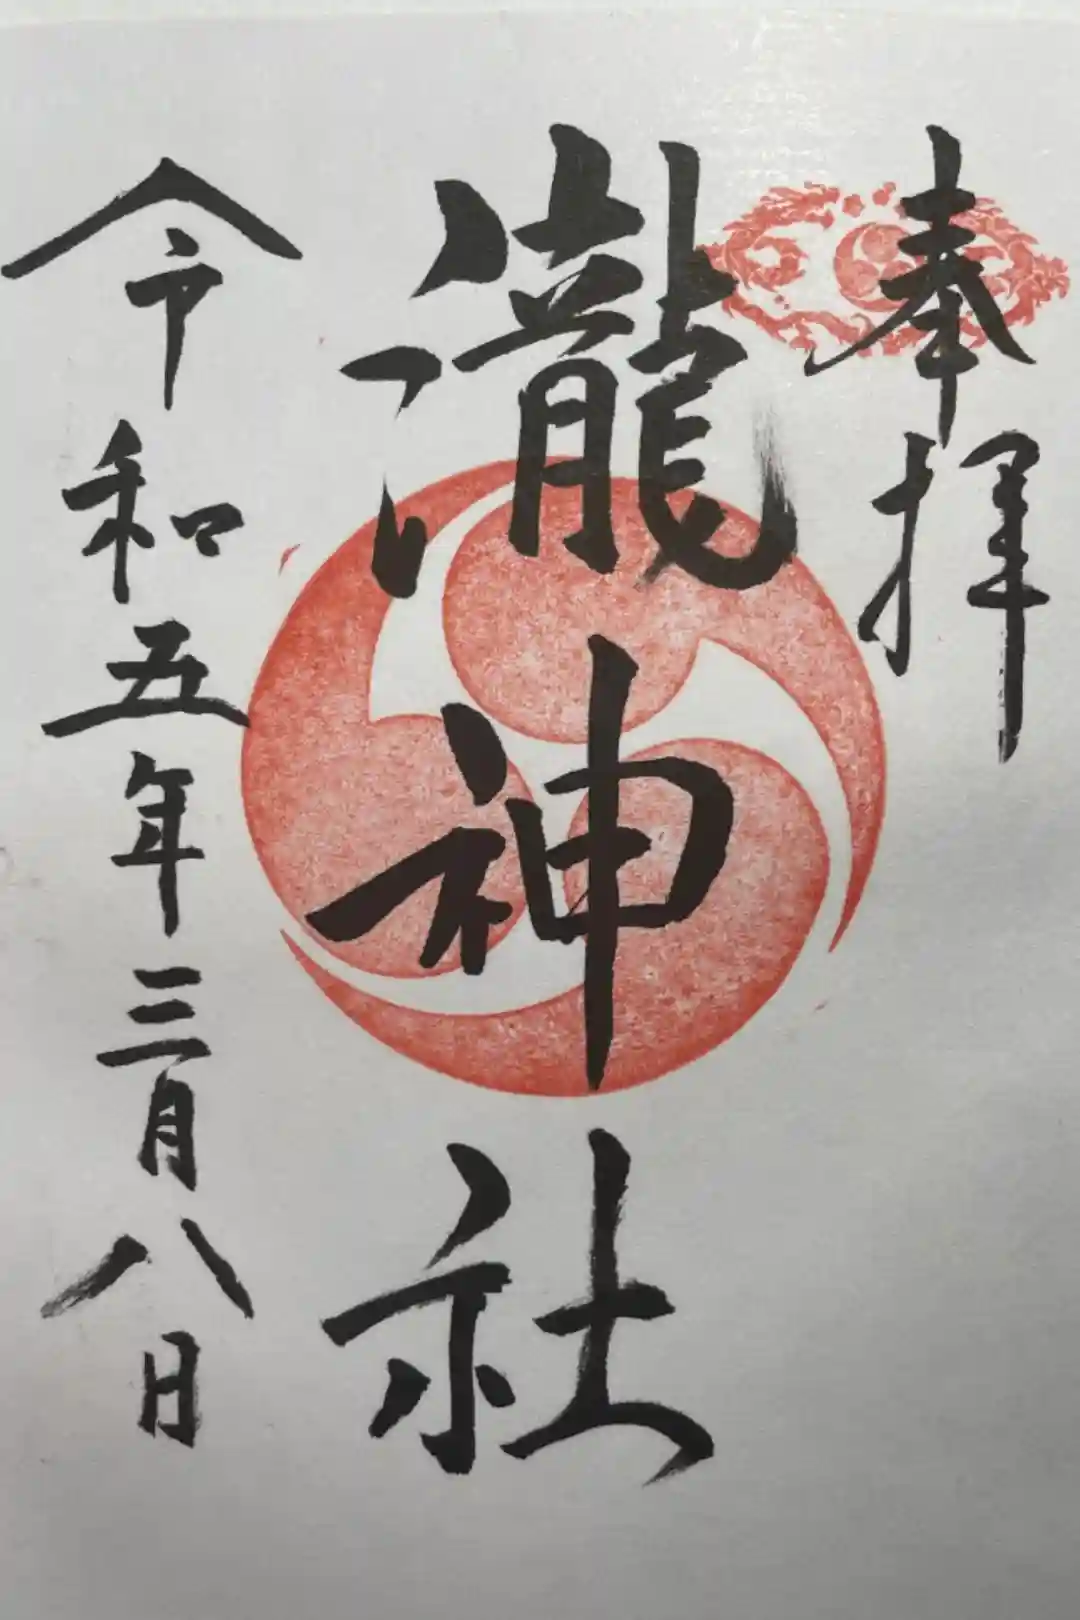 奉拝
瀧神社
令和五年三月八日